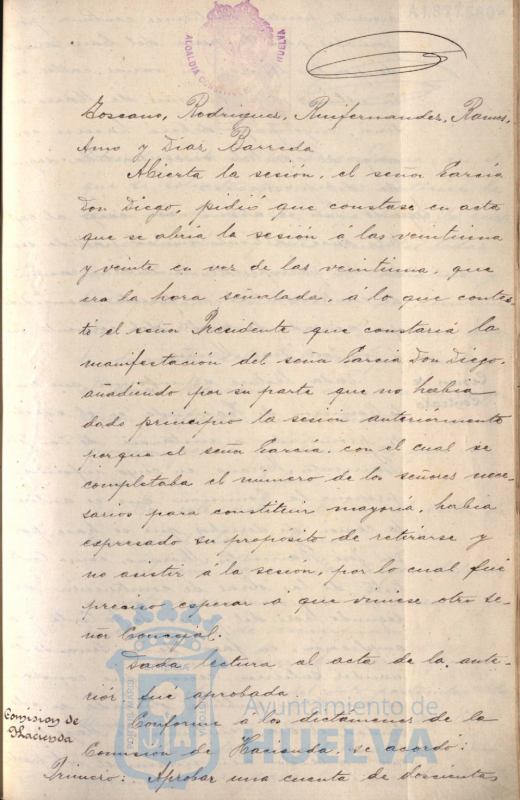 ALCALDIA CONSTITUCIONAL HUELVA
Toscano, Rodriguez, Ruifernandez, Ramos,
Amo y Diaz Barreda
Abierta la sesión, el señor Garcia
Don Diego, pidió que constase en acta
que se abria la sesión á las veintiuna
y veinte en vez de las veintiuna, que
era la hora señalada, á lo que contes-
tó el señor Presidente que constaria la
manifestación del señor Garcia Don Diego,
añadiendo por su parte que no habia
dado principio la sesión anteriormente
porque el señor Garcia, con el cual se
completaba el número de los señores nece-
sarios para constituir mayoría, habia
expresado su propósito de retirarse y
no asistir á la sesión, por lo cual fué
preciso esperar á que viniese otro se-
ñor Concejal.
Dada lectura al acta de la ante-
rior fué aprobada.
Comision de
Hacienda
Conforme a los dictamenes de la
Comisión de Hacienda, se acordó:
Primero: Aprobar una cuenta de doscientas
Ayuntamiento de
HUELVA